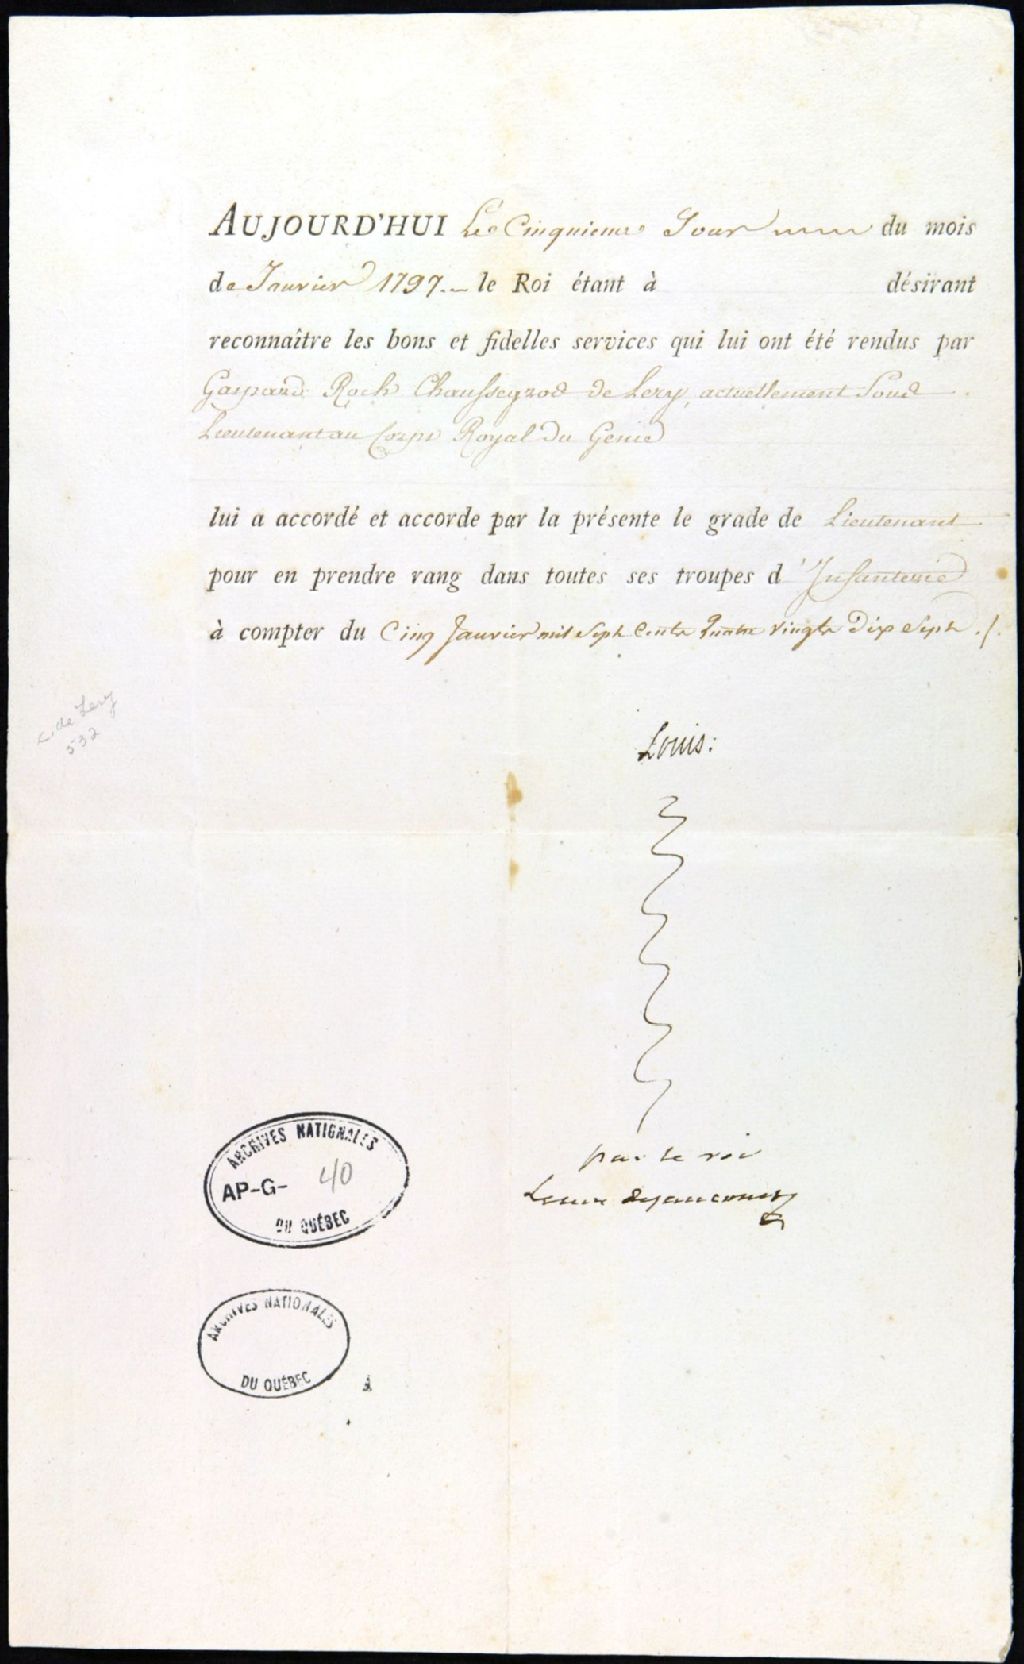 AUJOURD'HUI Le Cinquieme Jour du mois
de Janvier 1797. le Roi étant à désirant
reconnaître les bons et fidelles services qui lui ont été rendus par
Gaspard Roch Chaussegros de Lery, actuellement Sous
Lieutenant au Corps Royal du Genie
lui a accordé et accorde par la présente le grade de Lieutenant
pour en prendre rang dans toutes ses troupes d'Infanterie
à compter du Cinq Janvier mil Sept Cents Quatre vingts Dix Sept ./.
C. de Lery
532
Louis:
par le roi
ARCHIVES NATIONALES
AP-G- 40
DU QUÉBEC
ARCHIVES NATIONALES
DU QUÉBEC